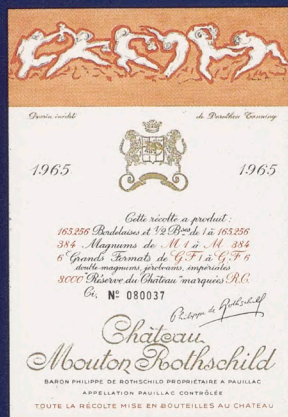 Dessin inédit de Dorothea Tanning
1965 1965
Cette récolte a produit :
163.256 Bordelaises et 1/2 Bses de 1 à 163.256
384 Magnums de M 1 à M 384
6 Grands Formats de G F 1 à G F 6
double-magnums, jéroboams, impériales
3000 "Réserve du Château" marquées R.C.
Ci, Nº 080037
Philippe de Rothschild
Château
Mouton Rothschild
BARON PHILIPPE DE ROTHSCHILD PROPRIÉTAIRE A PAUILLAC
APPELLATION PAUILLAC CONTRÔLÉE
TOUTE LA RÉCOLTE MISE EN BOUTEILLES AU CHÂTEAU